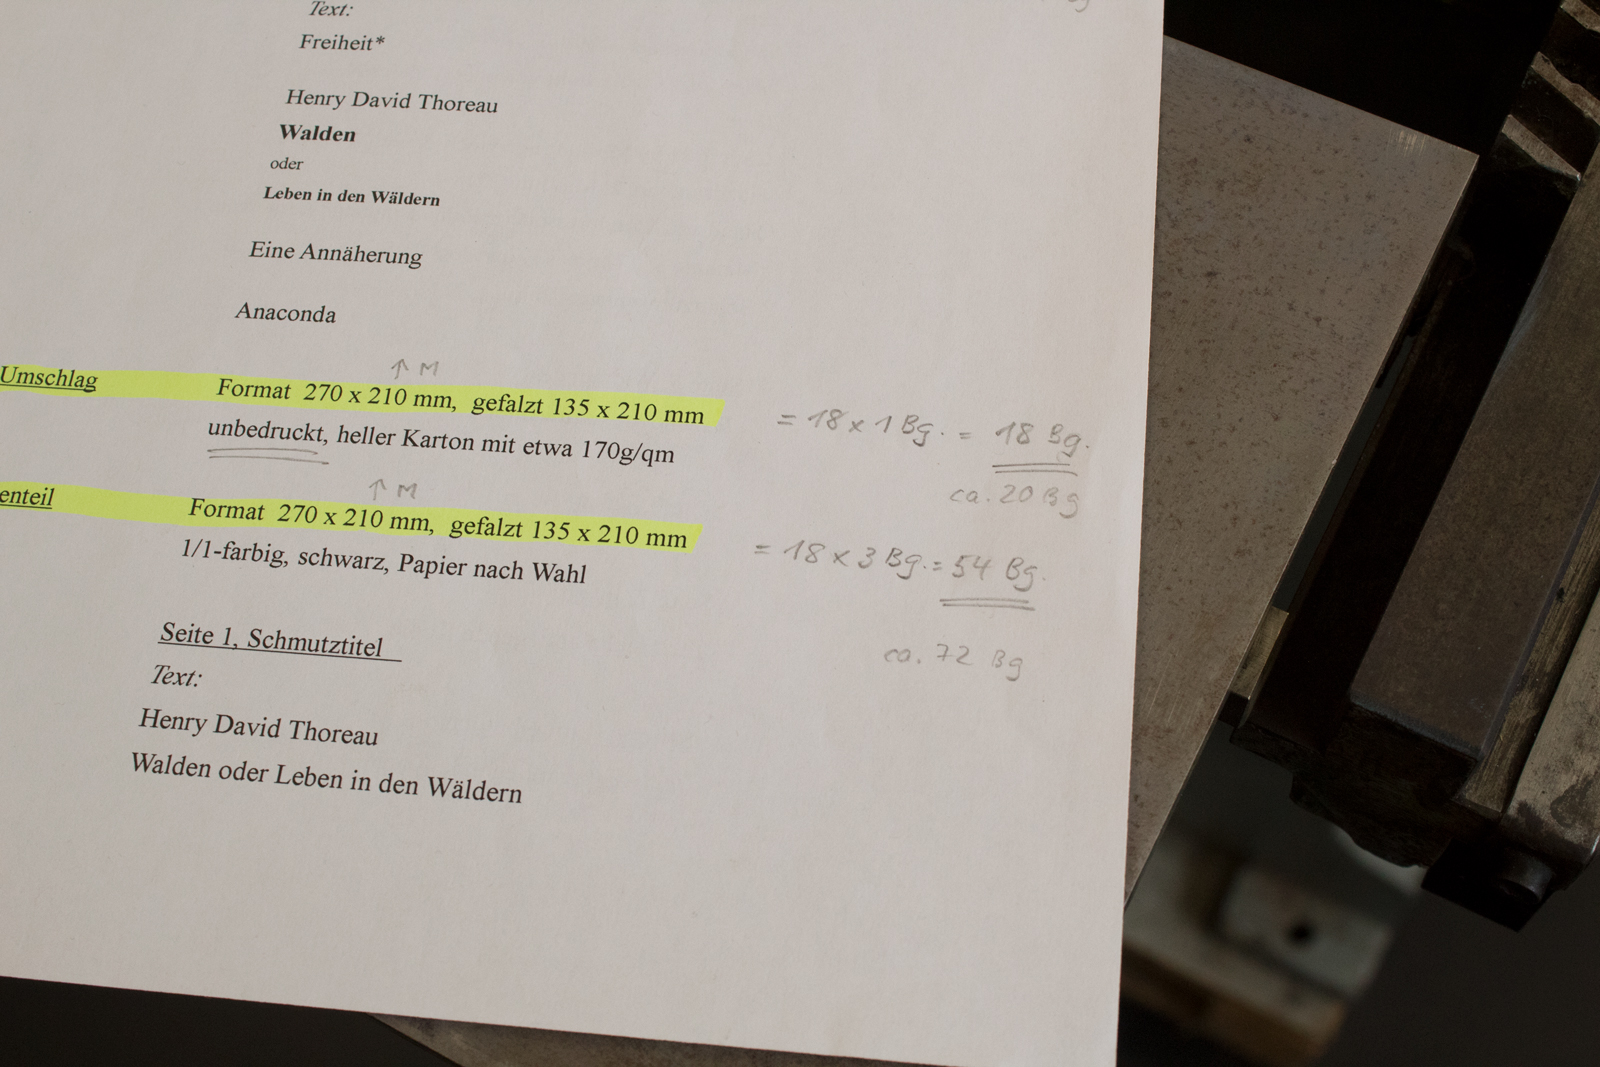 Text:
Freiheit*
Henry David Thoreau
Walden
oder
Leben in den Wäldern
Eine Annäherung
Anaconda
↑ M
Umschlag Format 270 x 210 mm, gefalzt 135 x 210 mm = 18 x 1 Bg. = 18 Bg.
unbedruckt, heller Karton mit etwa 170g/qm ca. 20 Bg
↑ M
enteil Format 270 x 210 mm, gefalzt 135 x 210 mm = 18 x 3 Bg. = 54 Bg.
1/1-farbig, schwarz, Papier nach Wahl
ca. 72 Bg
Seite 1, Schmutztitel
Text:
Henry David Thoreau
Walden oder Leben in den Wäldern